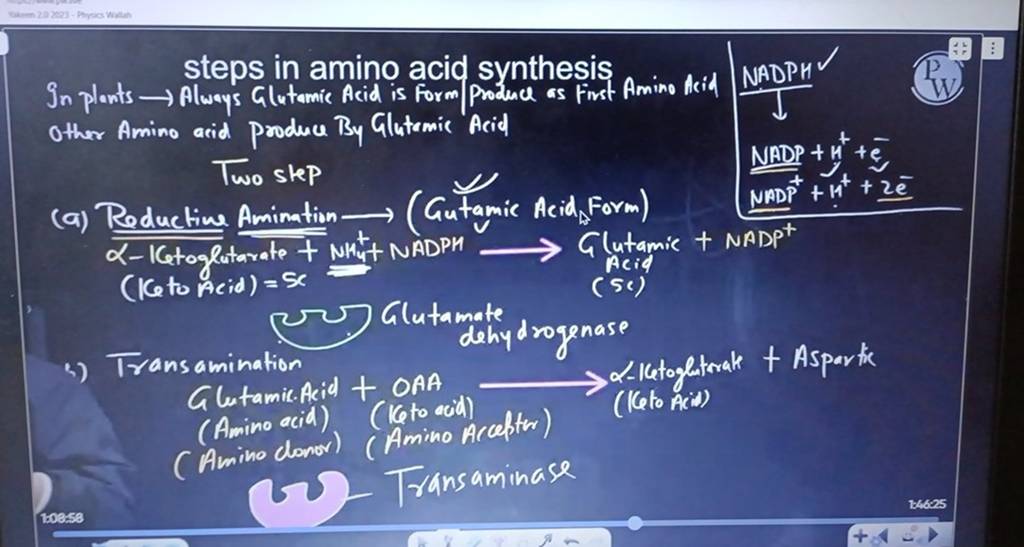 Yakeen 2.0 2023 - Physics Wallah
steps in amino acid synthesis
In plants → Always Glutamic Acid is Form/Produce as First Amino Acid
Other Amino acid produce By Glutamic Acid
Two step
(a) Reductive Amination → (Gutamic Acid Form)
α-Ketoglutarate + NH4+ + NADPH → Glutamic Acid + NADP+
(Keto Acid) = 5C
(5C)
Glutamate dehydrogenase
b) Transamination
Glutamic Acid + OAA → α-Ketoglutarate + Aspartic
(Amino acid) (Keto acid) (Keto Acid)
(Amino donor) (Amino Acceptor)
Transaminase
NADPH ✓
↓
NADP + H+ + e-
NADP+ + H+ + 2e-
PW
1:08:58
1:46:25